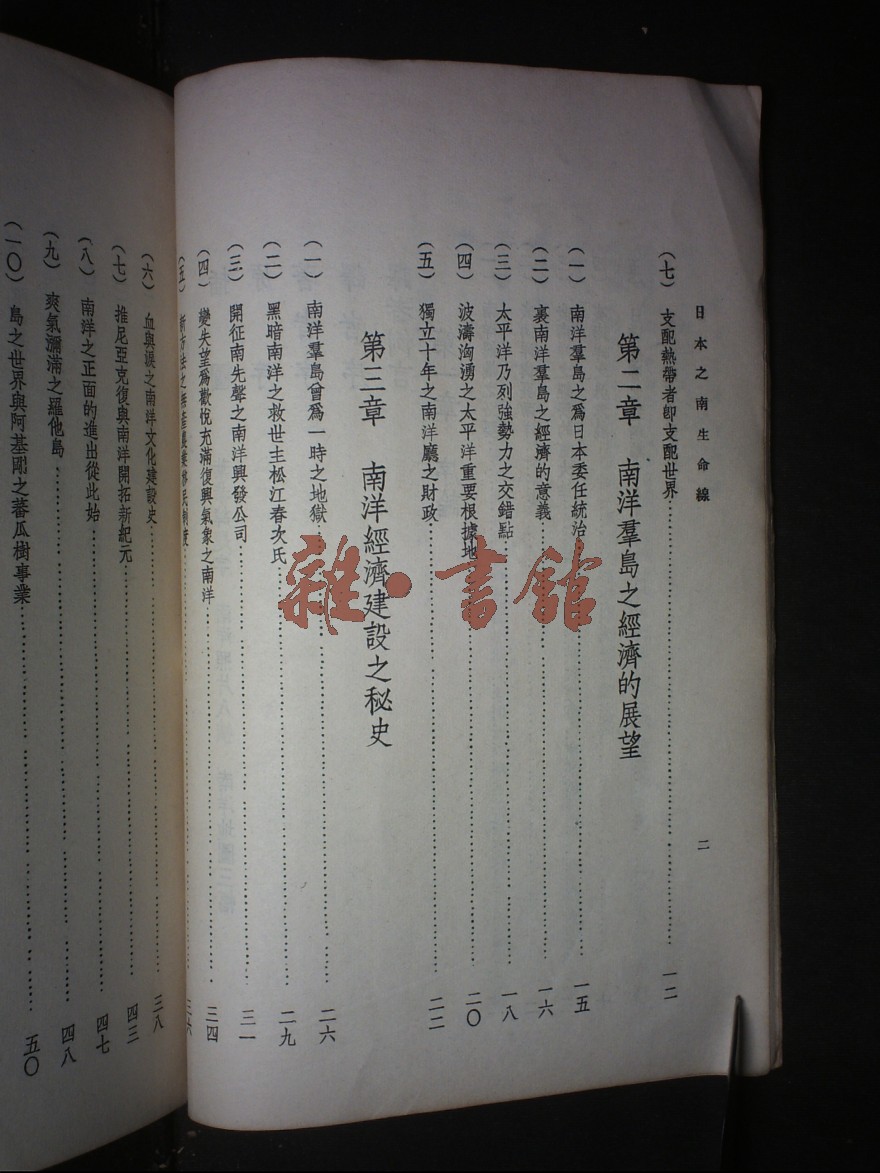 日本之南生命線
二
(七) 支配熱帶者卽支配世界……一二
第二章 南洋羣島之經濟的展望
(一) 南洋羣島之爲日本委任統治……一五
(二) 裹南洋羣島之經濟的意義……一六
(三) 太平洋乃列強勢力之交錯點……一八
(四) 波濤洶湧之太平洋重要根據地……二〇
(五) 獨立十年之南洋廳之財政……二二
第三章 南洋經濟建設之秘史
(一) 南洋羣島曾爲一時之地獄……二六
(二) 黑暗南洋之救世主松江春次氏……二九
(三) 開征南先聲之南洋興發公司……三一
(四) 變失望爲歡悅充滿復興氣象之南洋……三四
(五) 新方法之無產農業移民制度……三六
(六) 血與淚之南洋文化建設史……三八
(七) 推尼亞克復與南洋開拓新紀元……四三
(八) 南洋之正面的進出從此始……四七
(九) 爽氣瀰滿之羅他島……四八
(一〇) 島之世界與阿基剛之蕃瓜樹事業……五〇
雜·書館